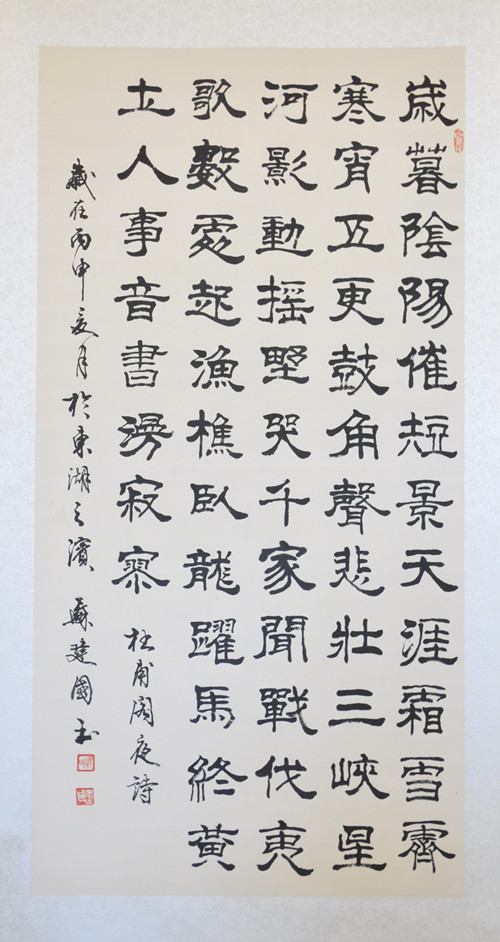 歲暮陰陽催短景天涯霜雪霽
寒宵五更鼓角聲悲壯三峽星
河影動搖野哭千家聞戰伐夷
歌數處起漁樵臥龍躍馬終黃
土人事音書漫寂寥
杜甫阁夜詩
歲在丙申夏月於東湖之濱 蘇建國书